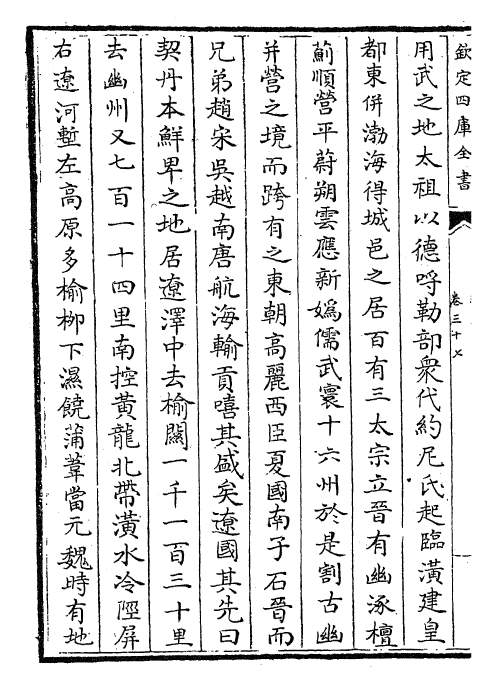 欽定四庫全書
卷三十七
用武之地太祖以德哷勒部衆代約尼氏起臨潢建皇
都東併渤海得城邑之居百有三太宗立晉有幽涿檀
薊順營平蔚朔雲應新媯儒武寰十六州於是割古幽
并營之境而跨有之東朝高麗西臣夏國南子石晉而
兄弟趙宋吳越南唐航海輸貢嘻其盛矣遼國其先曰
契丹本鮮卑之地居遼澤中去榆闗一千一百三十里
去幽州又七百一十四里南控黄龍北帶潢水冷陘屏
右遼河塹左高原多榆栁下濕饒蒲葦當元魏時有地